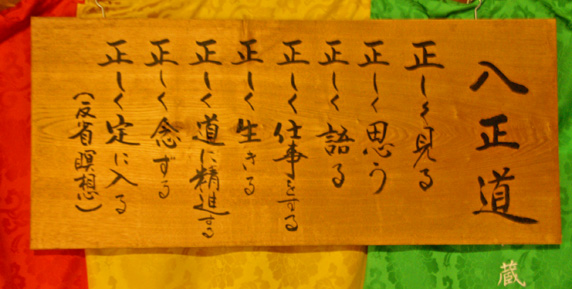 八正道
正しく見る
正しく思う
正しく語る
正しく仕事をする
正しく生きる
正しく道に精進する
正しく念ずる
正しく定に入る
（反省瞑想）
蔵